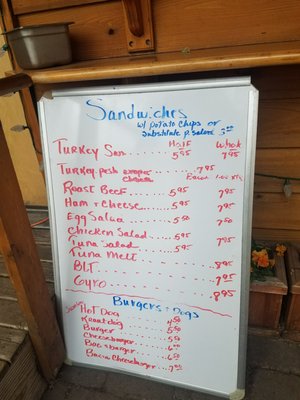 Sandwiches
w/ potato chips or
substitute p. salad
Half Whole
Turkey San... 5.95 7.95
Turkey pesto 7.95
Roast Beef. 5.95 7.95
Ham + cheese... 5.95 7.95
Egg Salad 5.50 7.50
Chicken Salad... 5.95 7.95
Tuna Salad... 5.95
Tuna Melt 8.95
BLT 7.95
Gyro 8.95
Burgers + Dogs
Hot Dog 4.50
Kraut dog
Burger
Cheeseburger
burger
Bacon Cheeseburger